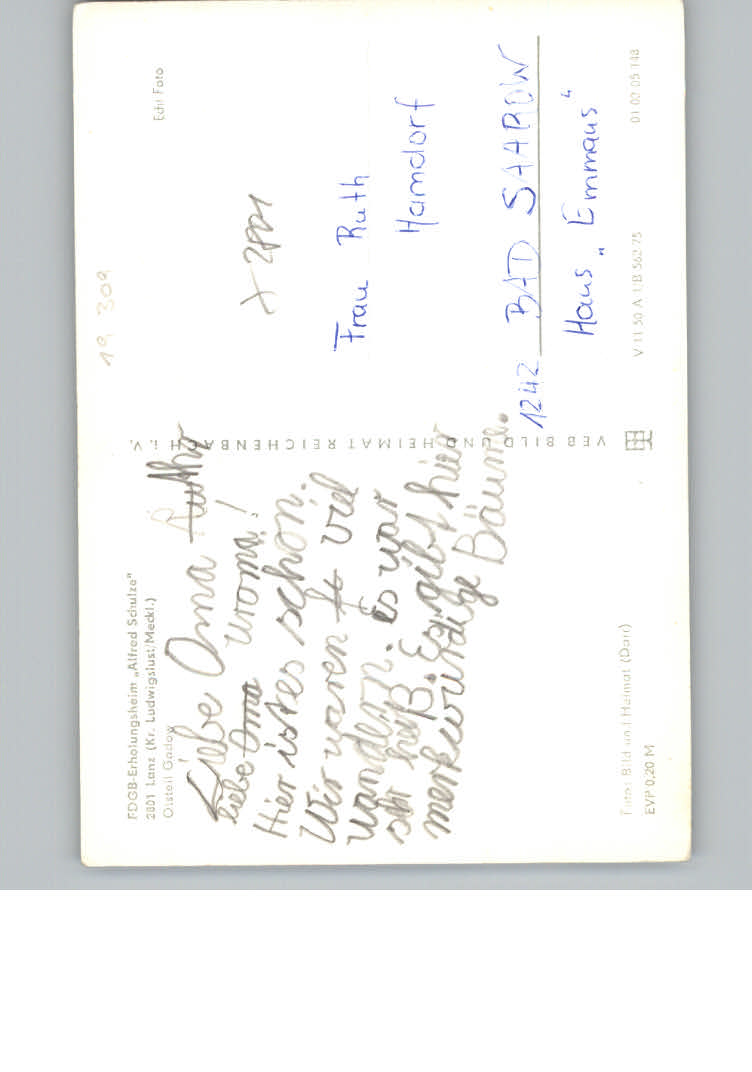 FDGB-Erholungsheim „Alfred Schulze"
2801 Lanz (Kr. Ludwigslust/Meckl.)
Ortsteil Gadow
Liebe Oma Ruthr
liebe Oma Uroma!
Hier ist es schön.
Wir waren fr viel
wandern. Es war
sehr heiß. Es gibt hier
merkwürdige Bäume.
Foto: Bild und Heimat (Darr)
EVP 0,20 M
VEB BILD UND HEIMAT REICHENBACH i. V.
19 309
Echt Foto
X 2801
Frau Ruth
Hamdorf
1242 BAD SAAROW
Haus „Emmaus"
V 11 50 A 1/B 562/75 01 02 05 148